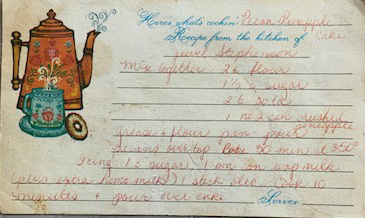 Here's what's cookin' Pecan Pineapple
Recipe from the kitchen of Cake
Jewel Stephenson
Mix together 2 c flour
1 1/2 c sugar
2 t soda
1 no 2 can crushed
pineapple
grease & flour pan pour
pecans over top Bake 30 min at 350°
Icing 1 c sugar 1 sm can evp milk
(plus extra homo milk) 1 stick oleo Cook 10
minutes & pour over cake Serves